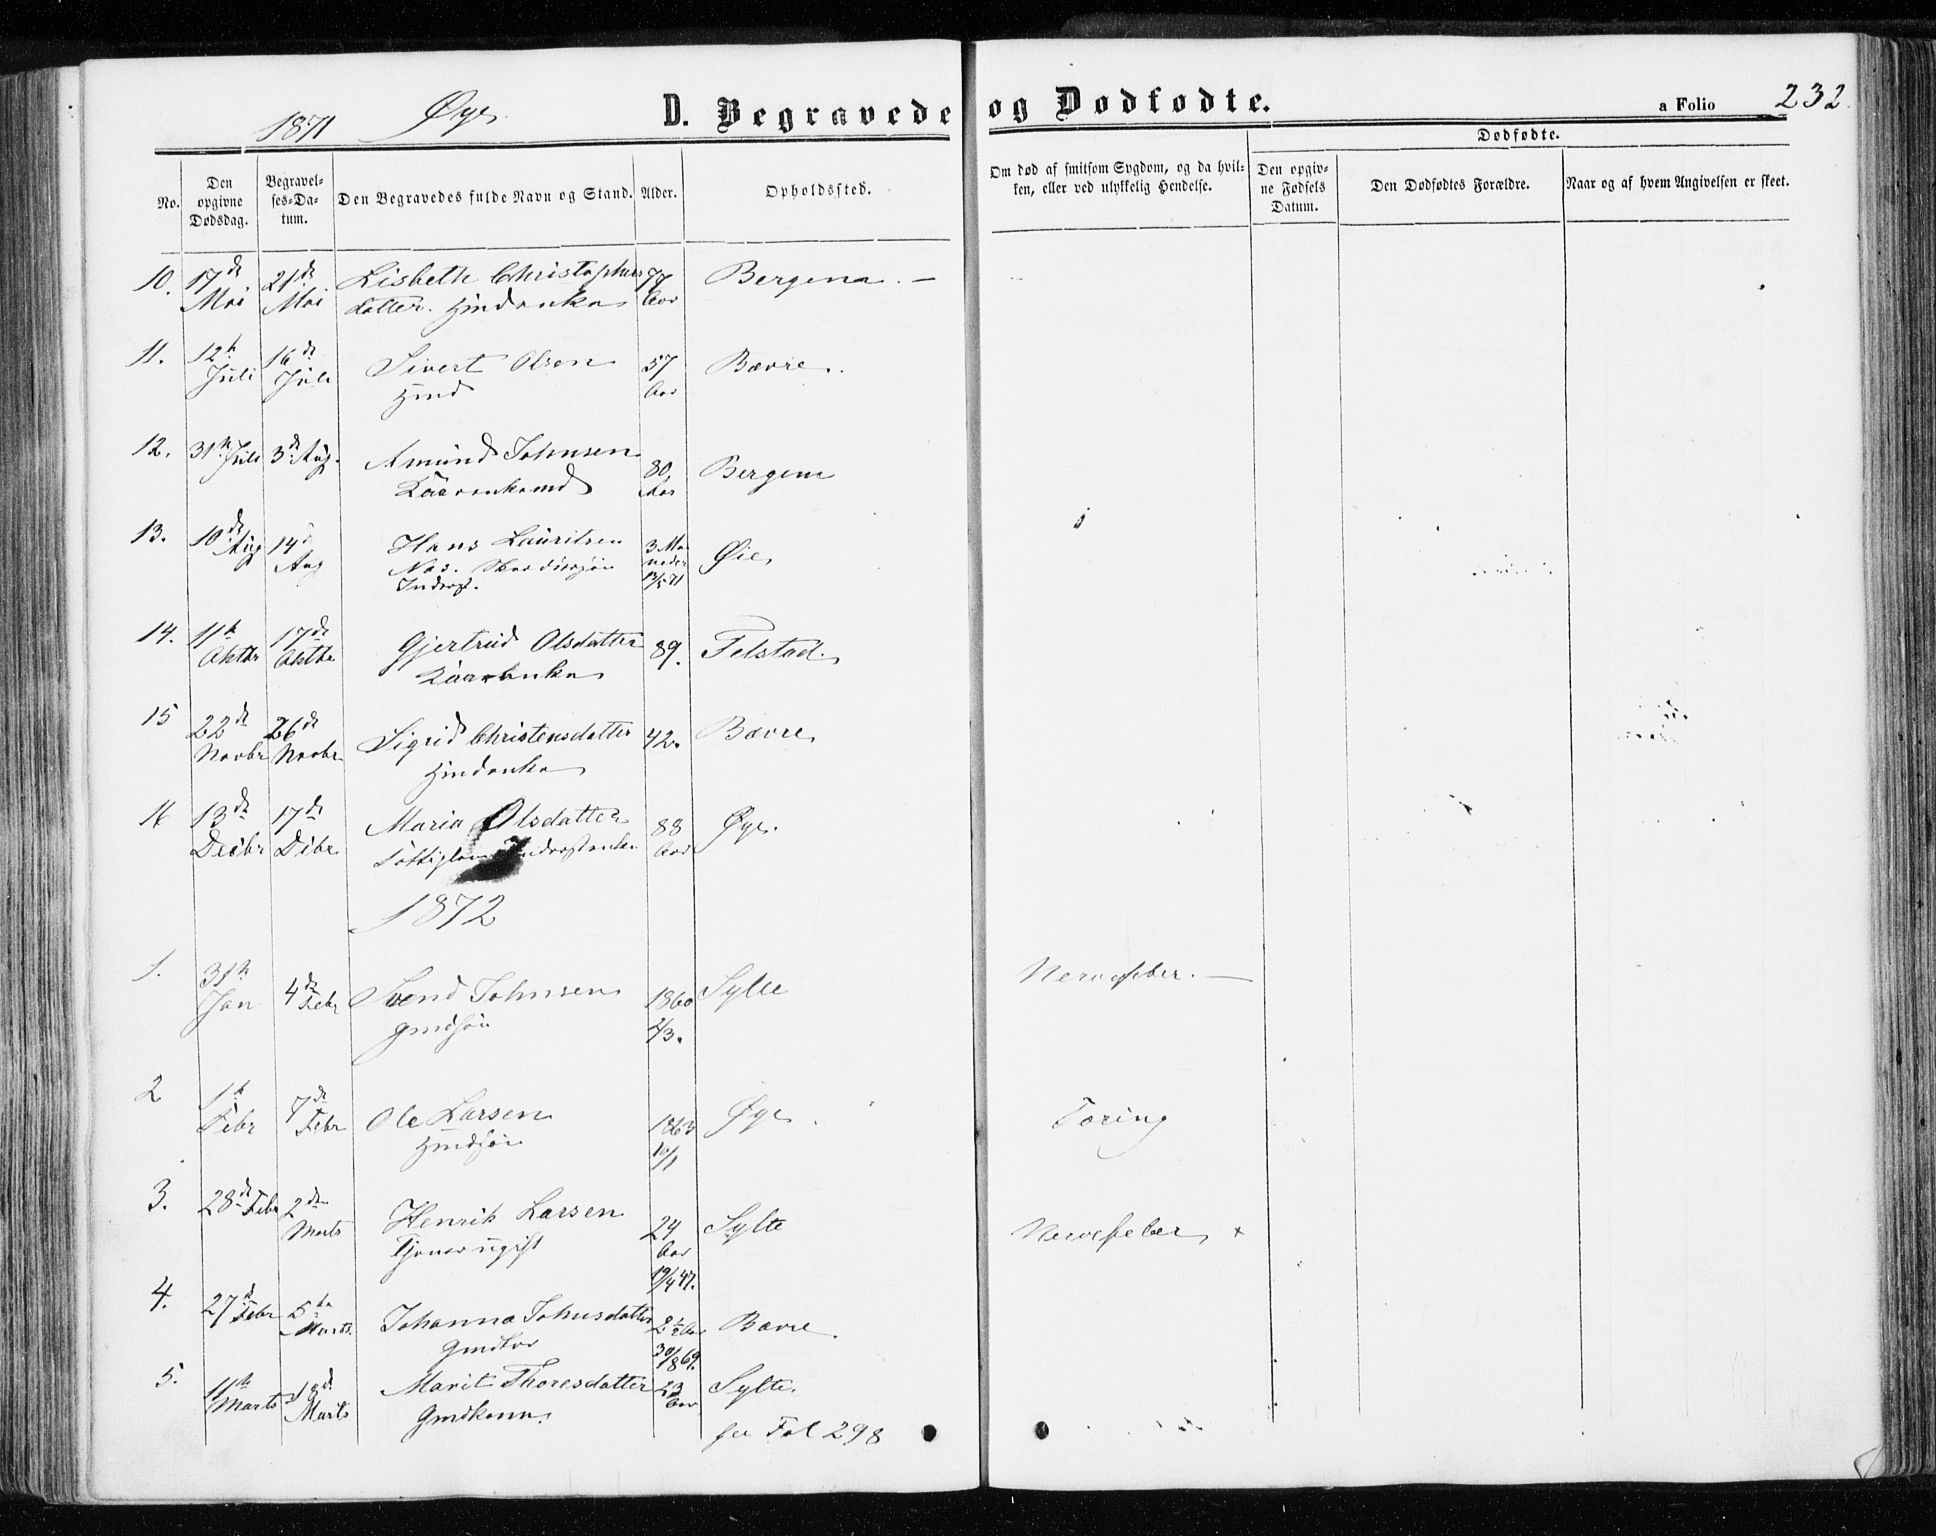 1871 Øye D. Begravede og Dödfödte. a Folio 232.
No.
Den opgivne Dødsdag.
Begravelses-Datum.
Den Begravedes fulde Navn og Stand.
Alder.
Opholdssted.
Om død af smitsom Sygdom, og da hvilken, eller ved ulykkelig Hendelse.
Dødfødte.
Den opgivne Fødsels Datum.
Den Dødfødtes Forældre.
Naar og af hvem Angivelsen er skeet.
10. 17de Mai 21de Mai Lisbeth Christophers 77 Aar Bergem. —
datter. Hmdenke
11. 12te Juli 16de Juli Sivert Olsen 57 Aar Bævre.
Hmd
12. 31te Juli 3de Aug. Amund Johnsen 80 Aar Bergem
Kaarenkemd
13. 10de Aug 14de Aug Hans Lauritsen 3 Maaneder 12/5 71 Øie
Inderst.
14. 11te Oktbr 17de Oktbr Gjertrud Olsdatter 89. Telstad.
Kaarenke
15 22de Novbr 26de Novbr Sigrid Christensdatter 42. Bævre
Hmdenke
16 13de Decbr 17de Dcbr Maria Olsdatter 88 Aar Øye.
Inderstenke
1872
1. 31te Jan 4de Febr Svend Johnsen 1860 2/3. Sylte Nervefeber. —
Gmdsøn
2 1te Febr 7de Febr Ole Larsen 1863 10/1 Øye Tæring
Hmdsøn
3. 28de Febr 2den Marts Henrik Larsen 24 Aar 19/4 47. Sylte Nervefeber +
Tjener ugift
4. 27de Febr 5te Marts Johanna Johnsdatter 2 1/2 Aar 30/8 69. Bævre.
Gmdbr
5. 11te Marts 18de Marts Marit Thoresdatter 23 Aar Sylte.
Gmdkone.
see Fol 298